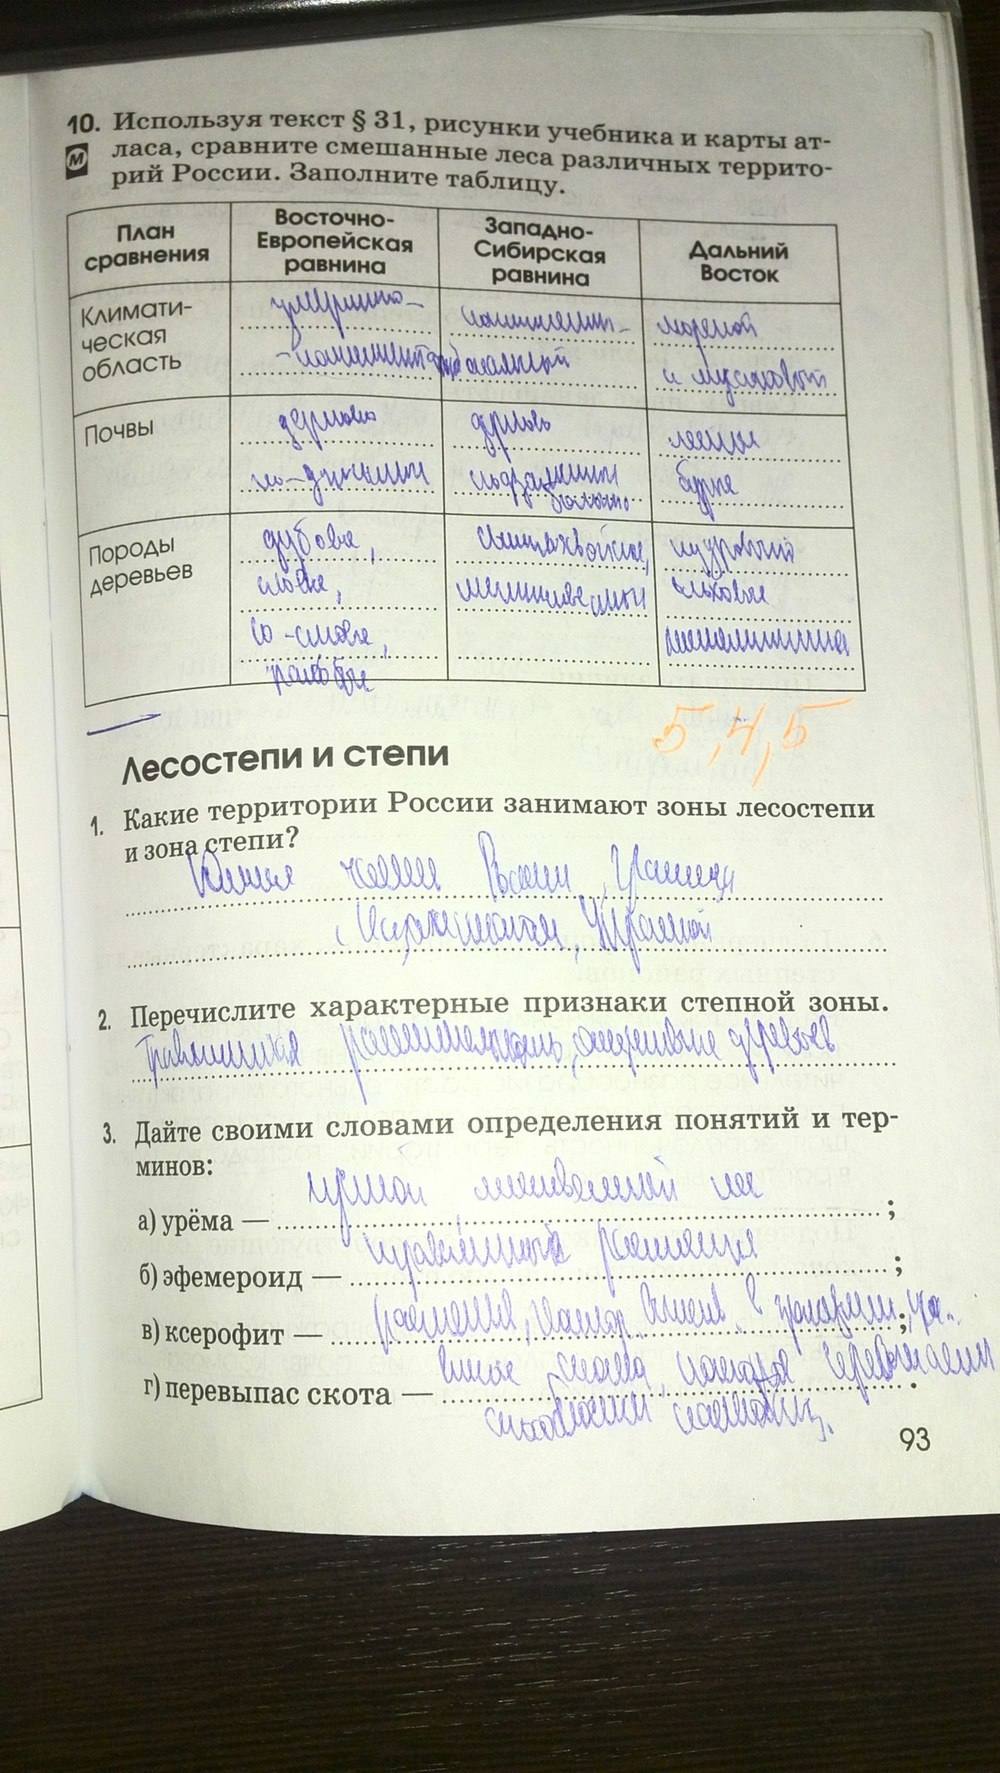 10. Используя текст § 31, рисунки учебника и карты ат-
М ласа, сравните смешанные леса различных террито-
рий России. Заполните таблицу.
План сравнения
Восточно-Европейская равнина
Западно-Сибирская равнина
Дальний Восток
Климати-
ческая
область
умеренно-
континент.
морской
и муссоновый
Почвы
дерново
дерново
лесные
бурые
Породы
деревьев
дубовые,
еловые,
кедровый
ольховые
5, 4, 5
Лесостепи и степи
1. Какие территории России занимают зоны лесостепи
и зона степи?
Южная часть России, граница
с Казахстаном, Украиной
2. Перечислите характерные признаки степной зоны.
Травянистая растительность, отсутствие деревьев
3. Дайте своими словами определения понятий и тер-
минов:
а) урёма — густой лиственный лес ;
б) эфемероид — растения ;
в) ксерофит — растения, ;
г) перевыпас скота — выпас скота, .
пастбищ.
93